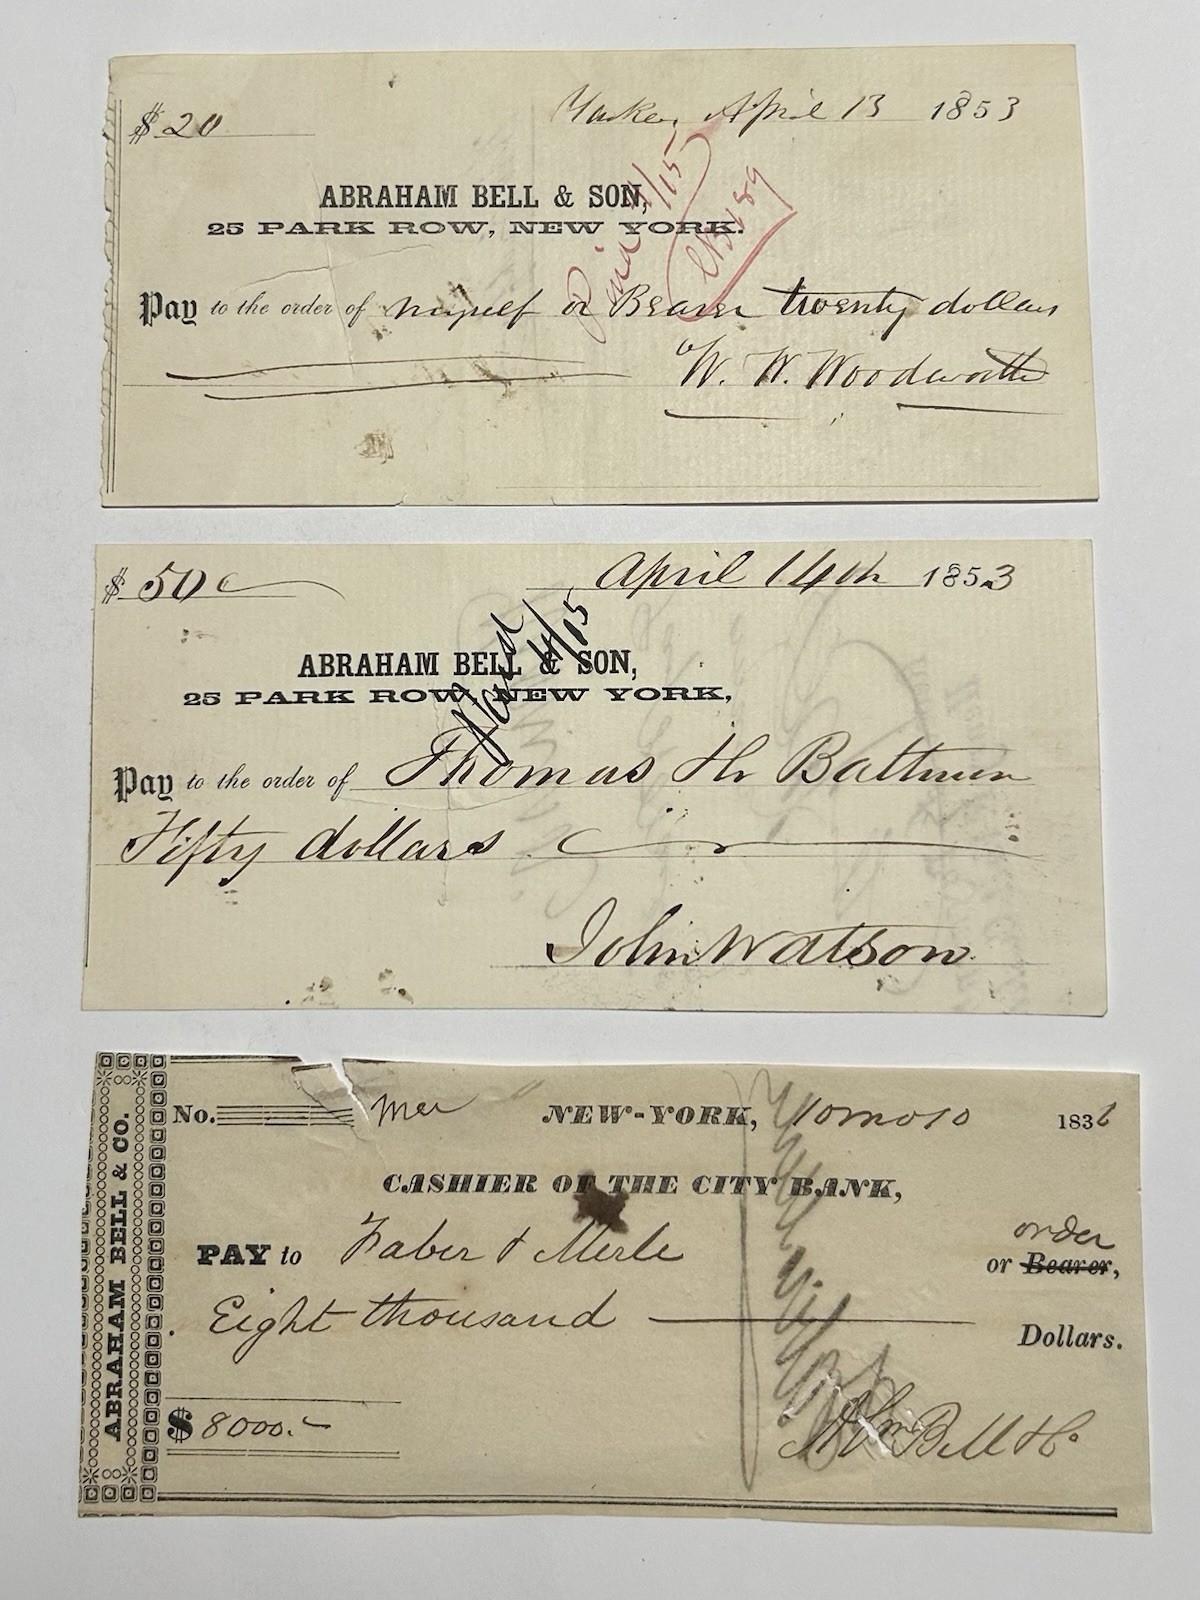 $ 20 April 13 1853
ABRAHAM BELL & SON,
25 PARK ROW, NEW YORK.
Paid 4/15
Pay to the order of myself or Bearer twenty dollars
W. W. Woodworth
$ 50 April 14th 1853
ABRAHAM BELL & SON,
25 PARK ROW, NEW YORK,
Paid 4/15
Pay to the order of Thomas H. Bateman
Fifty dollars
John Watson
ABRAHAM BELL & CO.
No. NEW-YORK, 10 mo 10 1836
CASHIER OF THE CITY BANK,
order
PAY to Faber & Merle or Bearer,
Eight thousand Dollars.
$ 8000.-
Abm Bell & Co